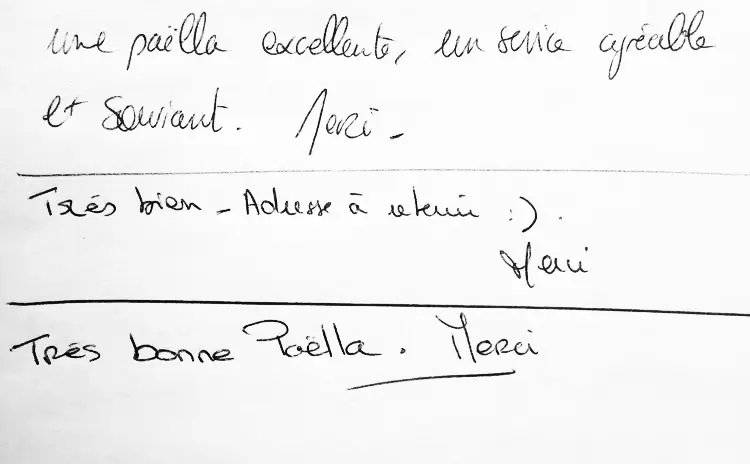 une paëlla excellente, un service agréable
et souriant. Merci -
Trés bien - Adresse à retenir :) .
Merci
Trés bonne Paëlla. Merci